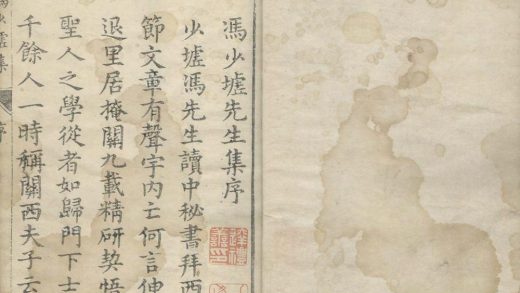 馮少墟先生集序
少墟馮先生讀中秘書拜西
節文章有聲宇内亡何言伸
退里居掩關九載精研契悟
聖人之學從者如歸門下士
千餘人一時稱關西夫子云
少墟集
序